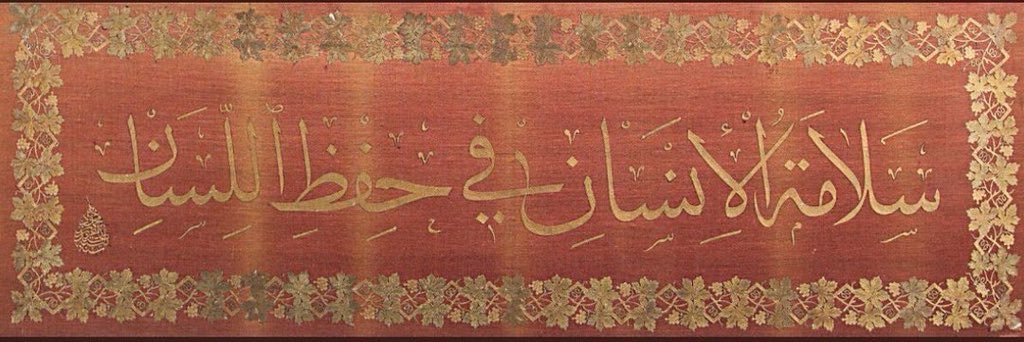 سَلَامَةُ الْإِنسَانِ فِي حِفْظِ اللِّسَانِ